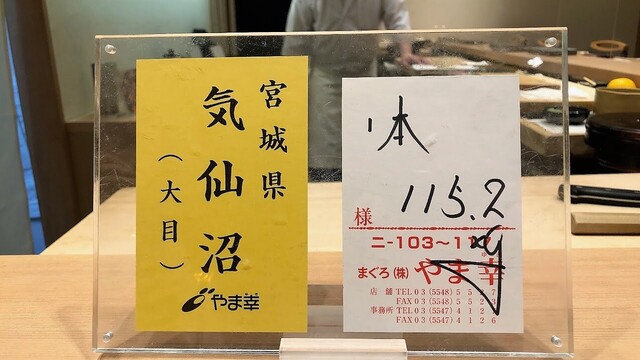 宮城県
気仙沼
(大目)
やま幸
115.2
kg
様
まぐろ(株)やま幸
店舗 TEL 03(5548)
FAX 03(5548)
事務所 TEL 03(5547)
FAX 03(5547)4126